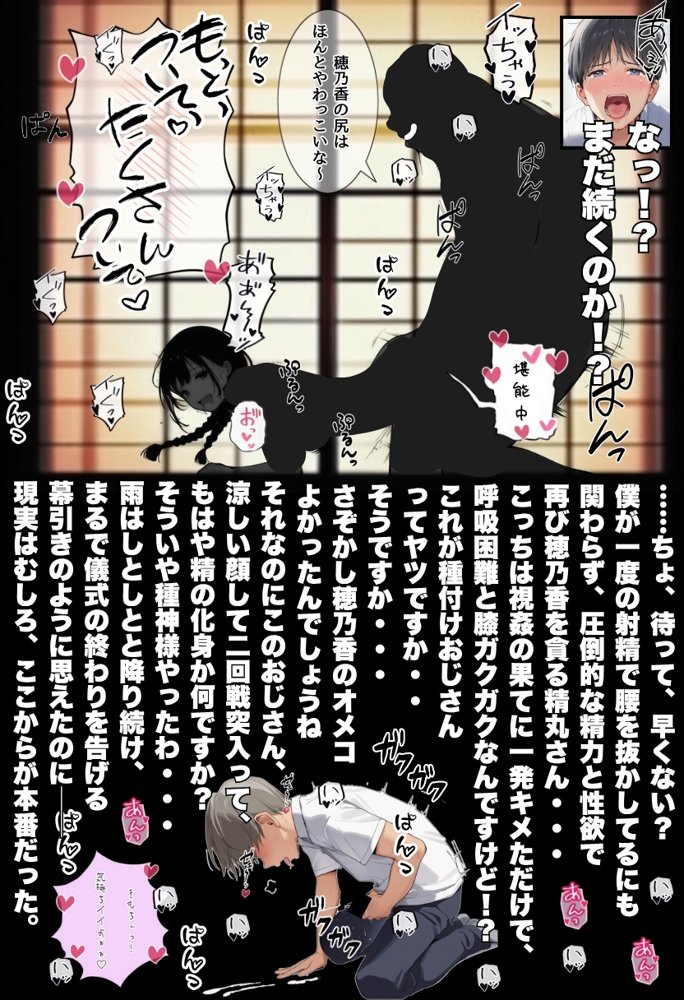 あへぇ
なっ！？
まだ続くのか！？
イッちゃう
穂乃香の尻は
ほんとやわっこいな～
もっと、
ついてっ♡
たくさん
ついて♡
ぱんっ
ぱん
ぱんっ
ぱんっ
ぱんっ
ぱんっ
イッちゃう
ぷるんっ
ぷるんっ
おっ♡
堪能中
ぱんっ
……ちょ、待って、早くない？
僕が一度の射精で腰を抜かしてるにも
関わらず、圧倒的な精力と性欲で
再び穂乃香を貪る精丸さん・・・
こっちは視姦の果てに一発キメただけで、
呼吸困難と膝ガクガクなんですけど！？
これが種付けおじさん
ってヤツですか・・
そうですか・・・
さぞかし穂乃香のオメコ
よかったんでしょうね
それなのにこのおじさん、
涼しい顔して二回戦突入って、
もはや精の化身か何ですか？
そういや種神様やったわ・・・
雨はしとしとと降り続け、
まるで儀式の終わりを告げる
幕引きのように思えたのに──
現実はむしろ、ここからが本番だった。
ガクガク
ガクガク
ぱんっ
ぱんっ
ぱんっ
あんっ
あんっ
あんっ